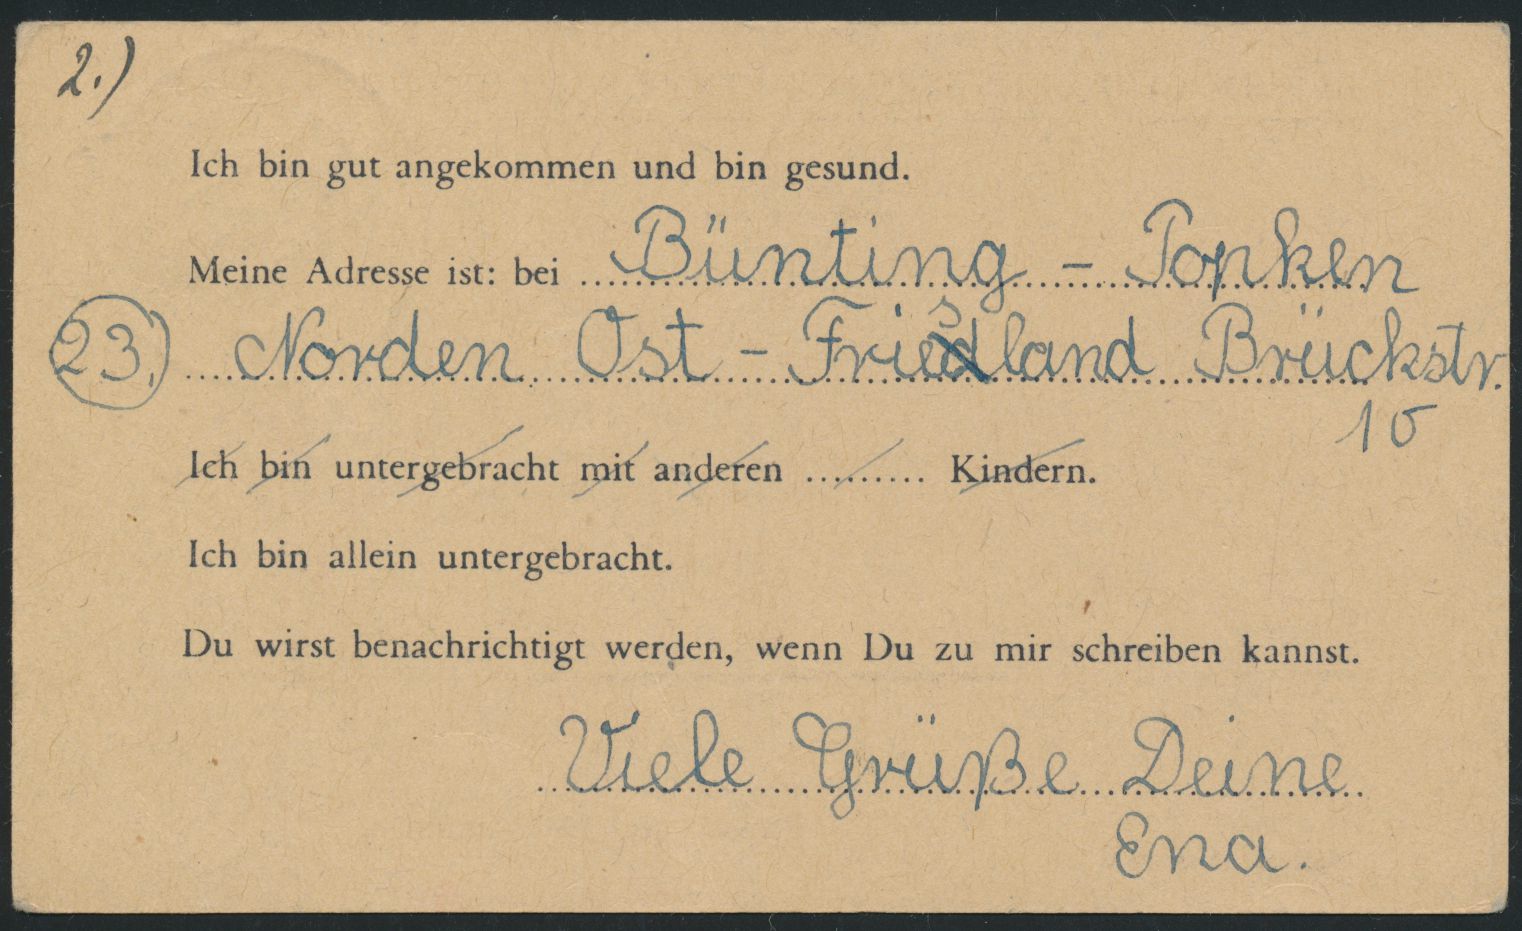 2.)
Ich bin gut angekommen und bin gesund.
Meine Adresse ist: bei Bünting - Popken
23.) Norden Ost - Friesland Brückstr.
10
Ich bin untergebracht mit anderen ......... Kindern.
Ich bin allein untergebracht.
Du wirst benachrichtigt werden, wenn Du zu mir schreiben kannst.
Viele Grüße Deine
Ena.